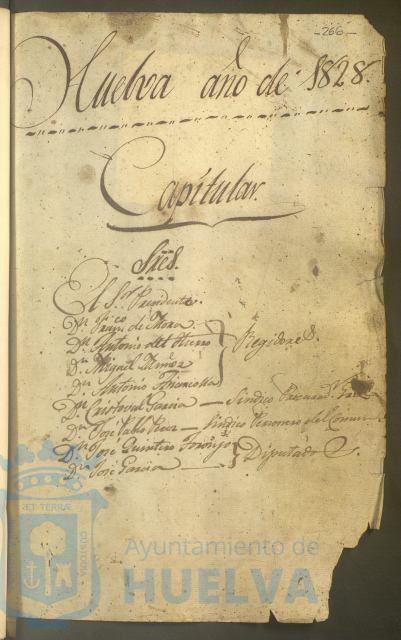 -266-
Huelva año de 1828.
Capitular.
Sres.
El Sor. Presidente.
Dn. Franco. de Mora
Dn. Antonio del Hierro
Dn. Miguel Muñoz
Dn. Antonio
Regidores.
Dn. Cristoval Garcia — Sindico Procurador
Dn. José Pablo Perez — Sindico Personero del Comun
Dn. José Quintero
Dn. José Garcia
Diputados
ET TERRÆ
CUSTODIA
Ayuntamiento de
HUELVA